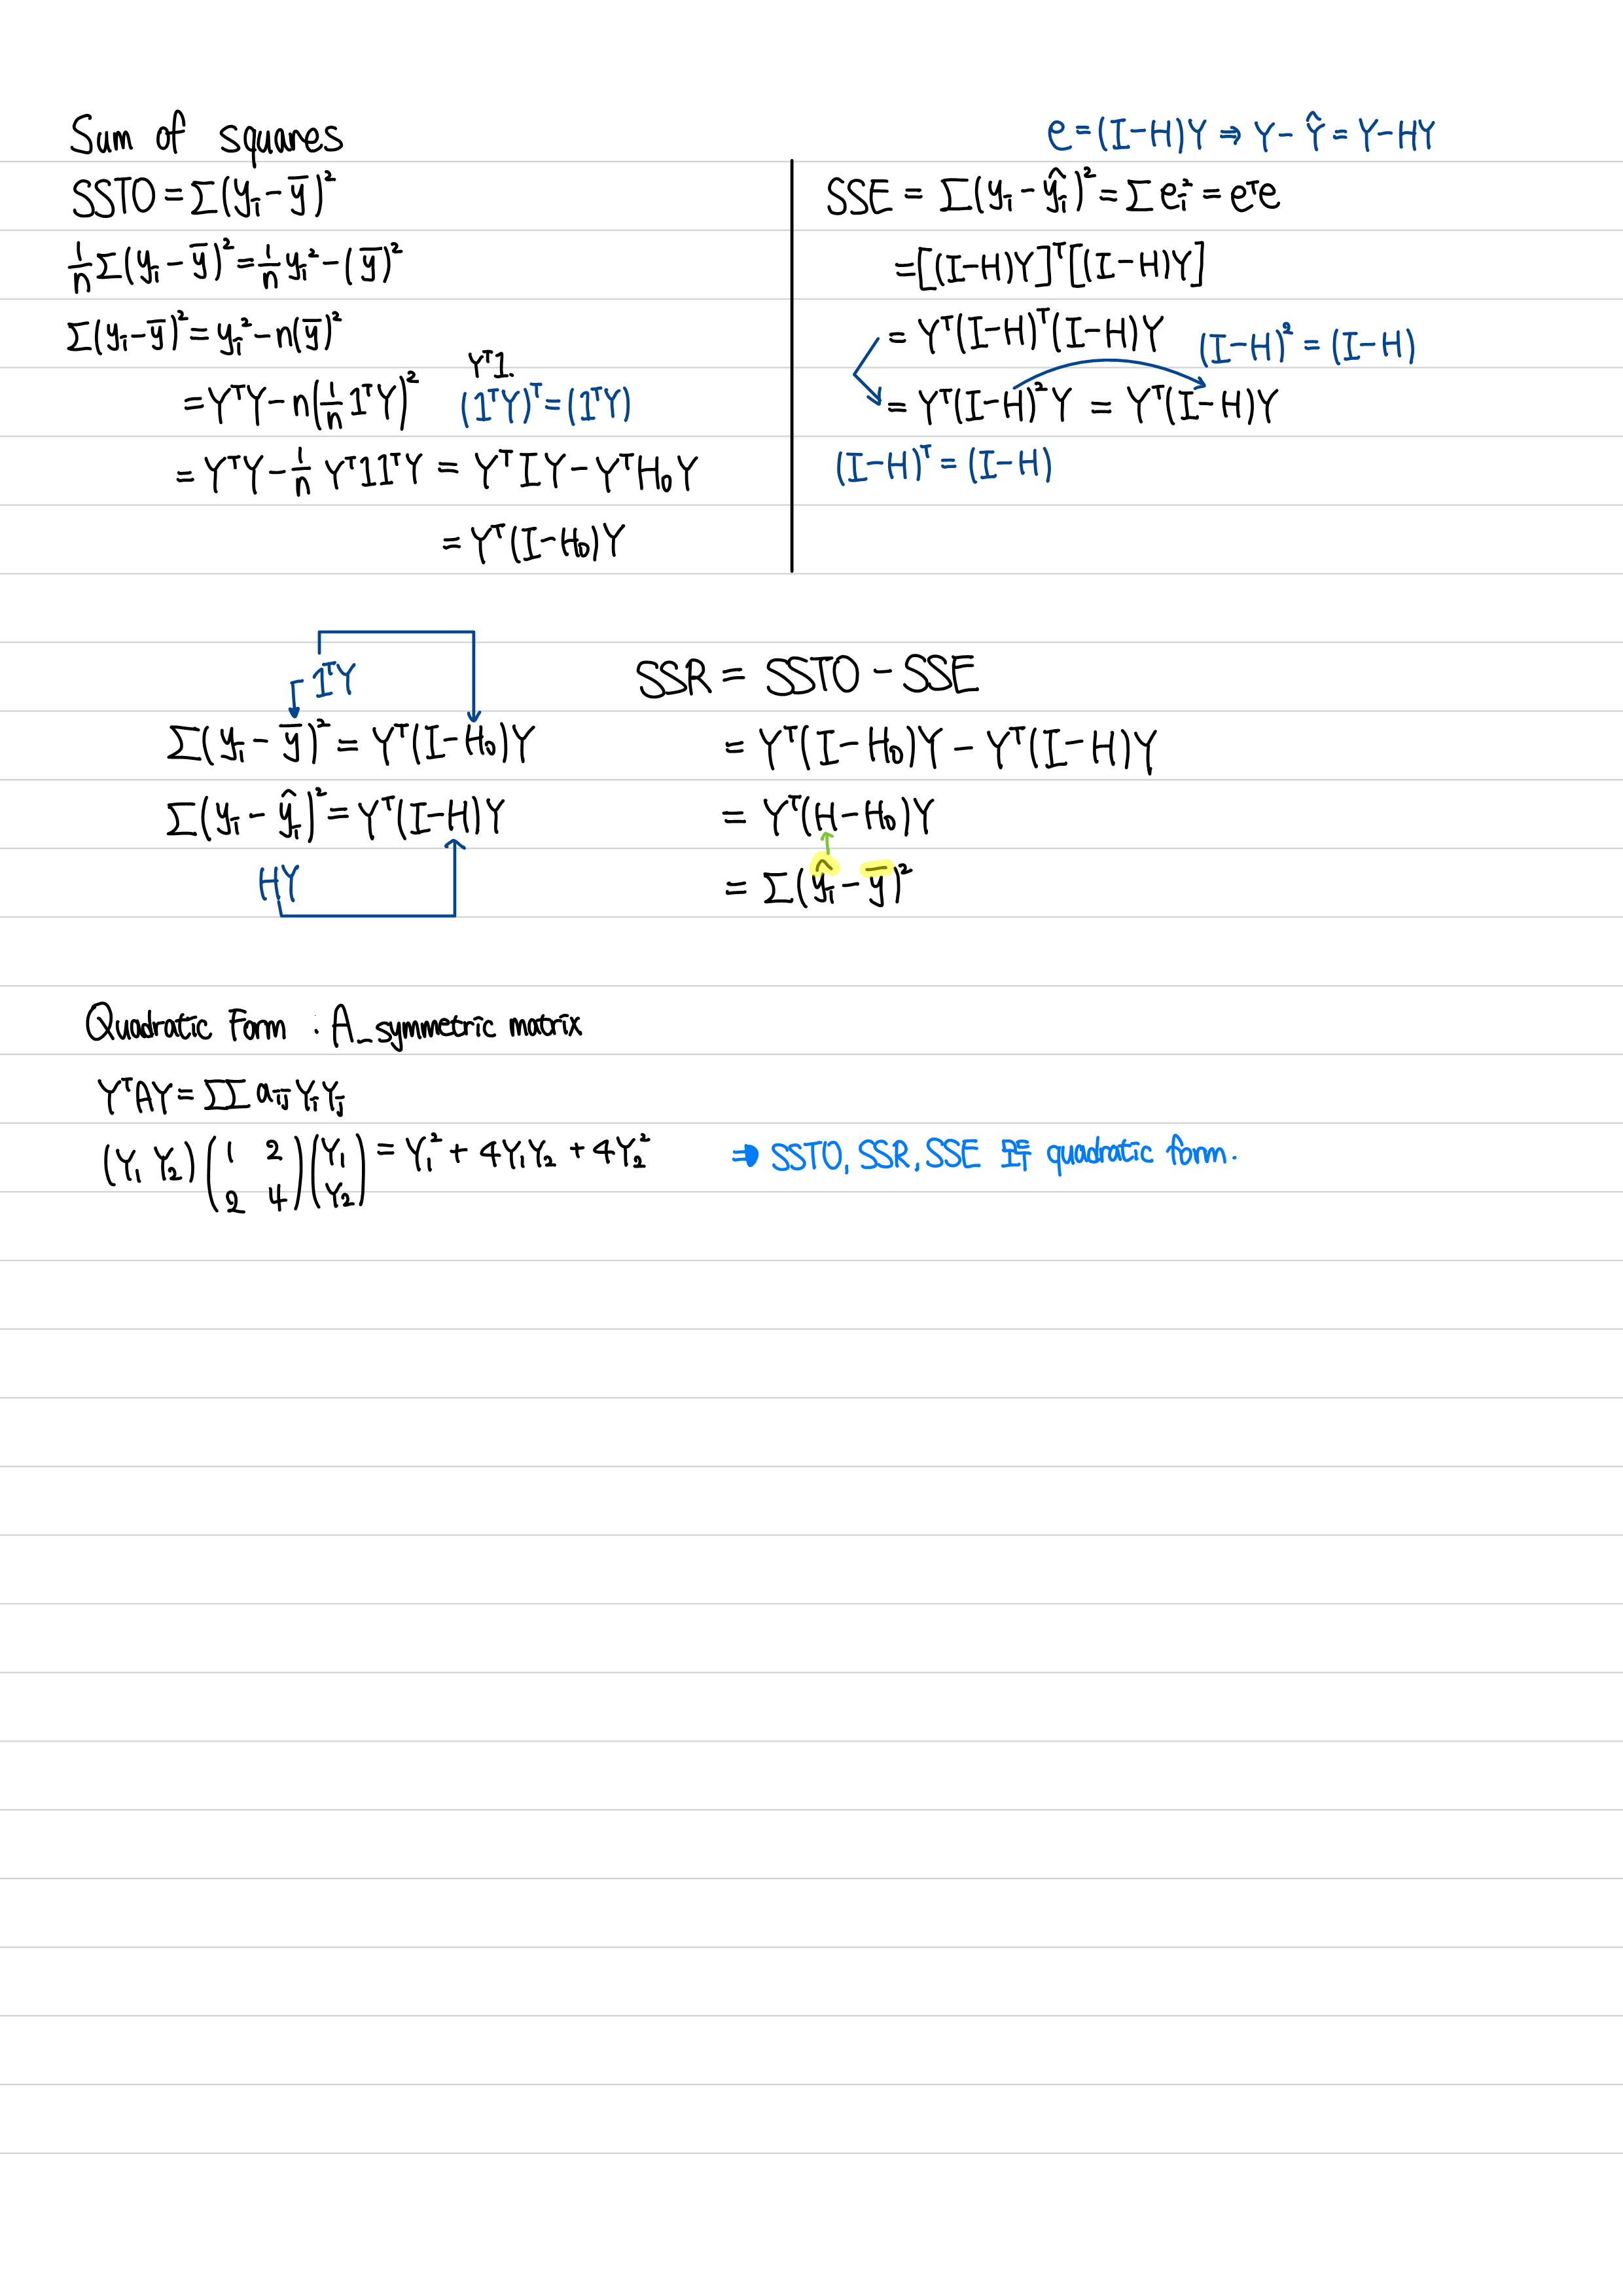 Sum of squares
SSTO = Σ(yᵢ − ȳ)²
1/n Σ(yᵢ − ȳ)² = 1/n yᵢ² − (ȳ)²
Σ(yᵢ − ȳ)² = yᵢ² − n(ȳ)²
= YᵀY − n(1/n 1ᵀY)²
Yᵀ1.
(1ᵀY)ᵀ = (1ᵀY)
= YᵀY − 1/n Yᵀ11ᵀY = YᵀIY − YᵀH₀Y
= Yᵀ(I−H₀)Y
e = (I−H)Y ⇒ Y − Ŷ = Y − HY
SSE = Σ(yᵢ − ŷᵢ)² = Σeᵢ² = eᵀe
= [(I−H)Y]ᵀ[(I−H)Y]
= Yᵀ(I−H)ᵀ(I−H)Y
(I−H)² = (I−H)
= Yᵀ(I−H)²Y = Yᵀ(I−H)Y
(I−H)ᵀ = (I−H)
1ᵀY
Σ(yᵢ − ȳ)² = Yᵀ(I−H₀)Y
Σ(yᵢ − ŷᵢ)² = Yᵀ(I−H)Y
HY
SSR = SSTO − SSE
= Yᵀ(I−H₀)Y − Yᵀ(I−H)Y
= Yᵀ(H−H₀)Y
= Σ(ŷᵢ − ȳ)²
Quadratic Form : A_symmetric matrix
YᵀAY = ΣΣ aᵢⱼYᵢYⱼ
(Y₁ Y₂) (1 2 / 2 4) (Y₁ / Y₂) = Y₁² + 4Y₁Y₂ + 4Y₂²
⇒ SSTO, SSR, SSE 모두 quadratic form.